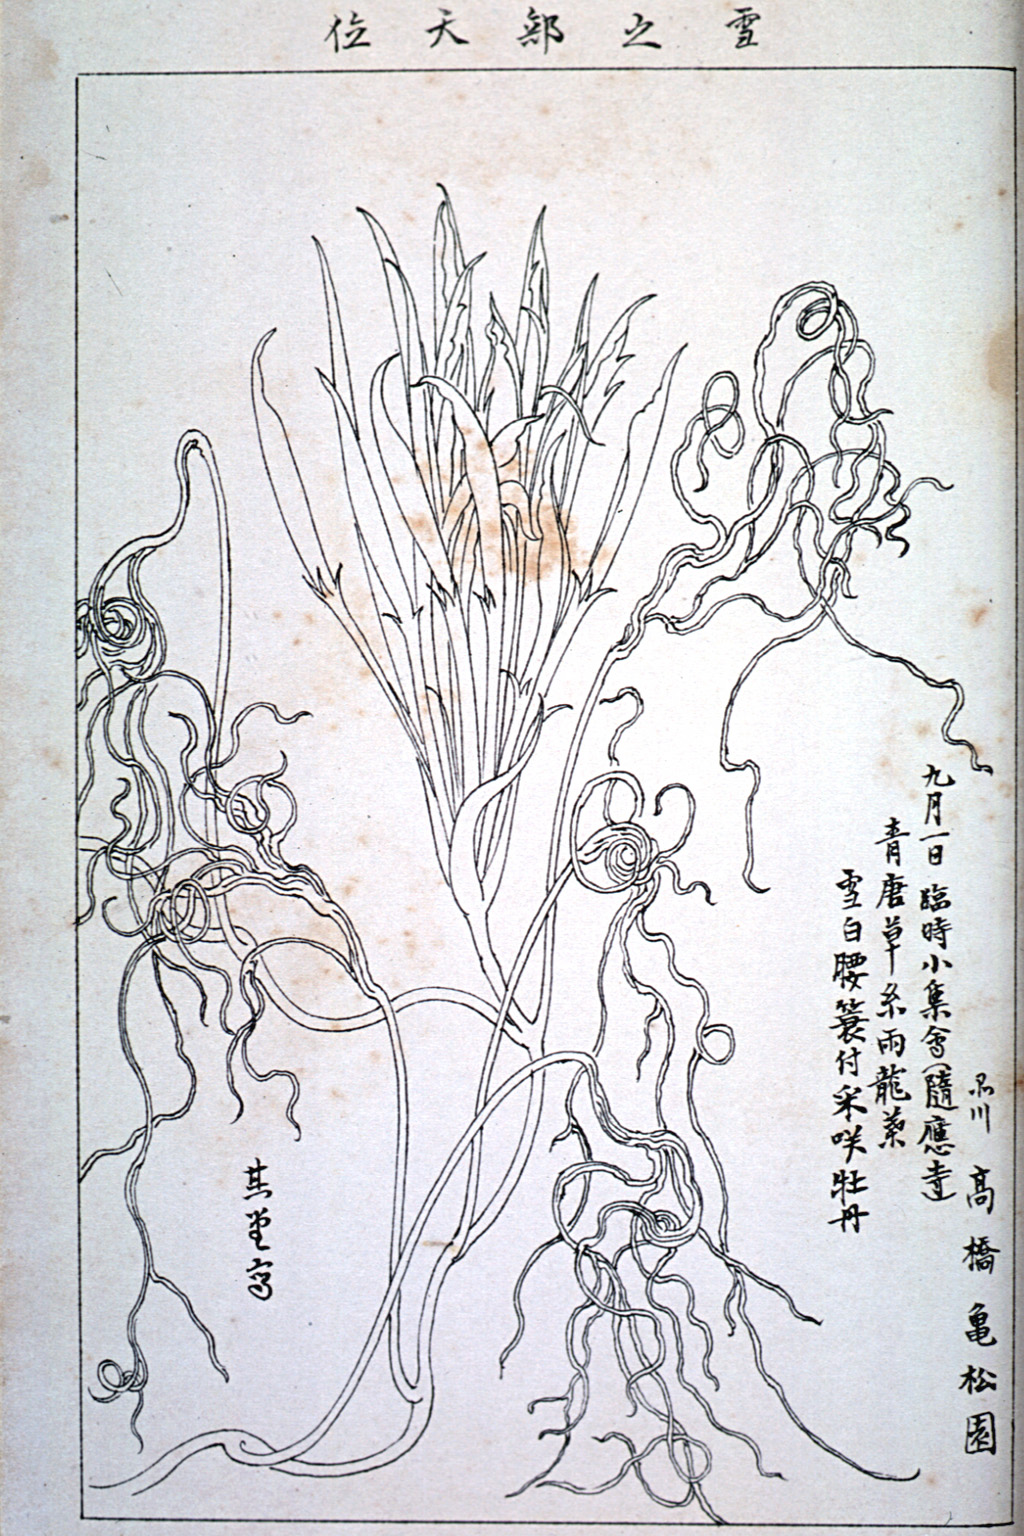 雪之部天位
九月一日臨時小集會(隨應寺
青唐草糸雨龍葉
雪白腰簑付采咲牡丹
品川 高橋亀松園
其堂写